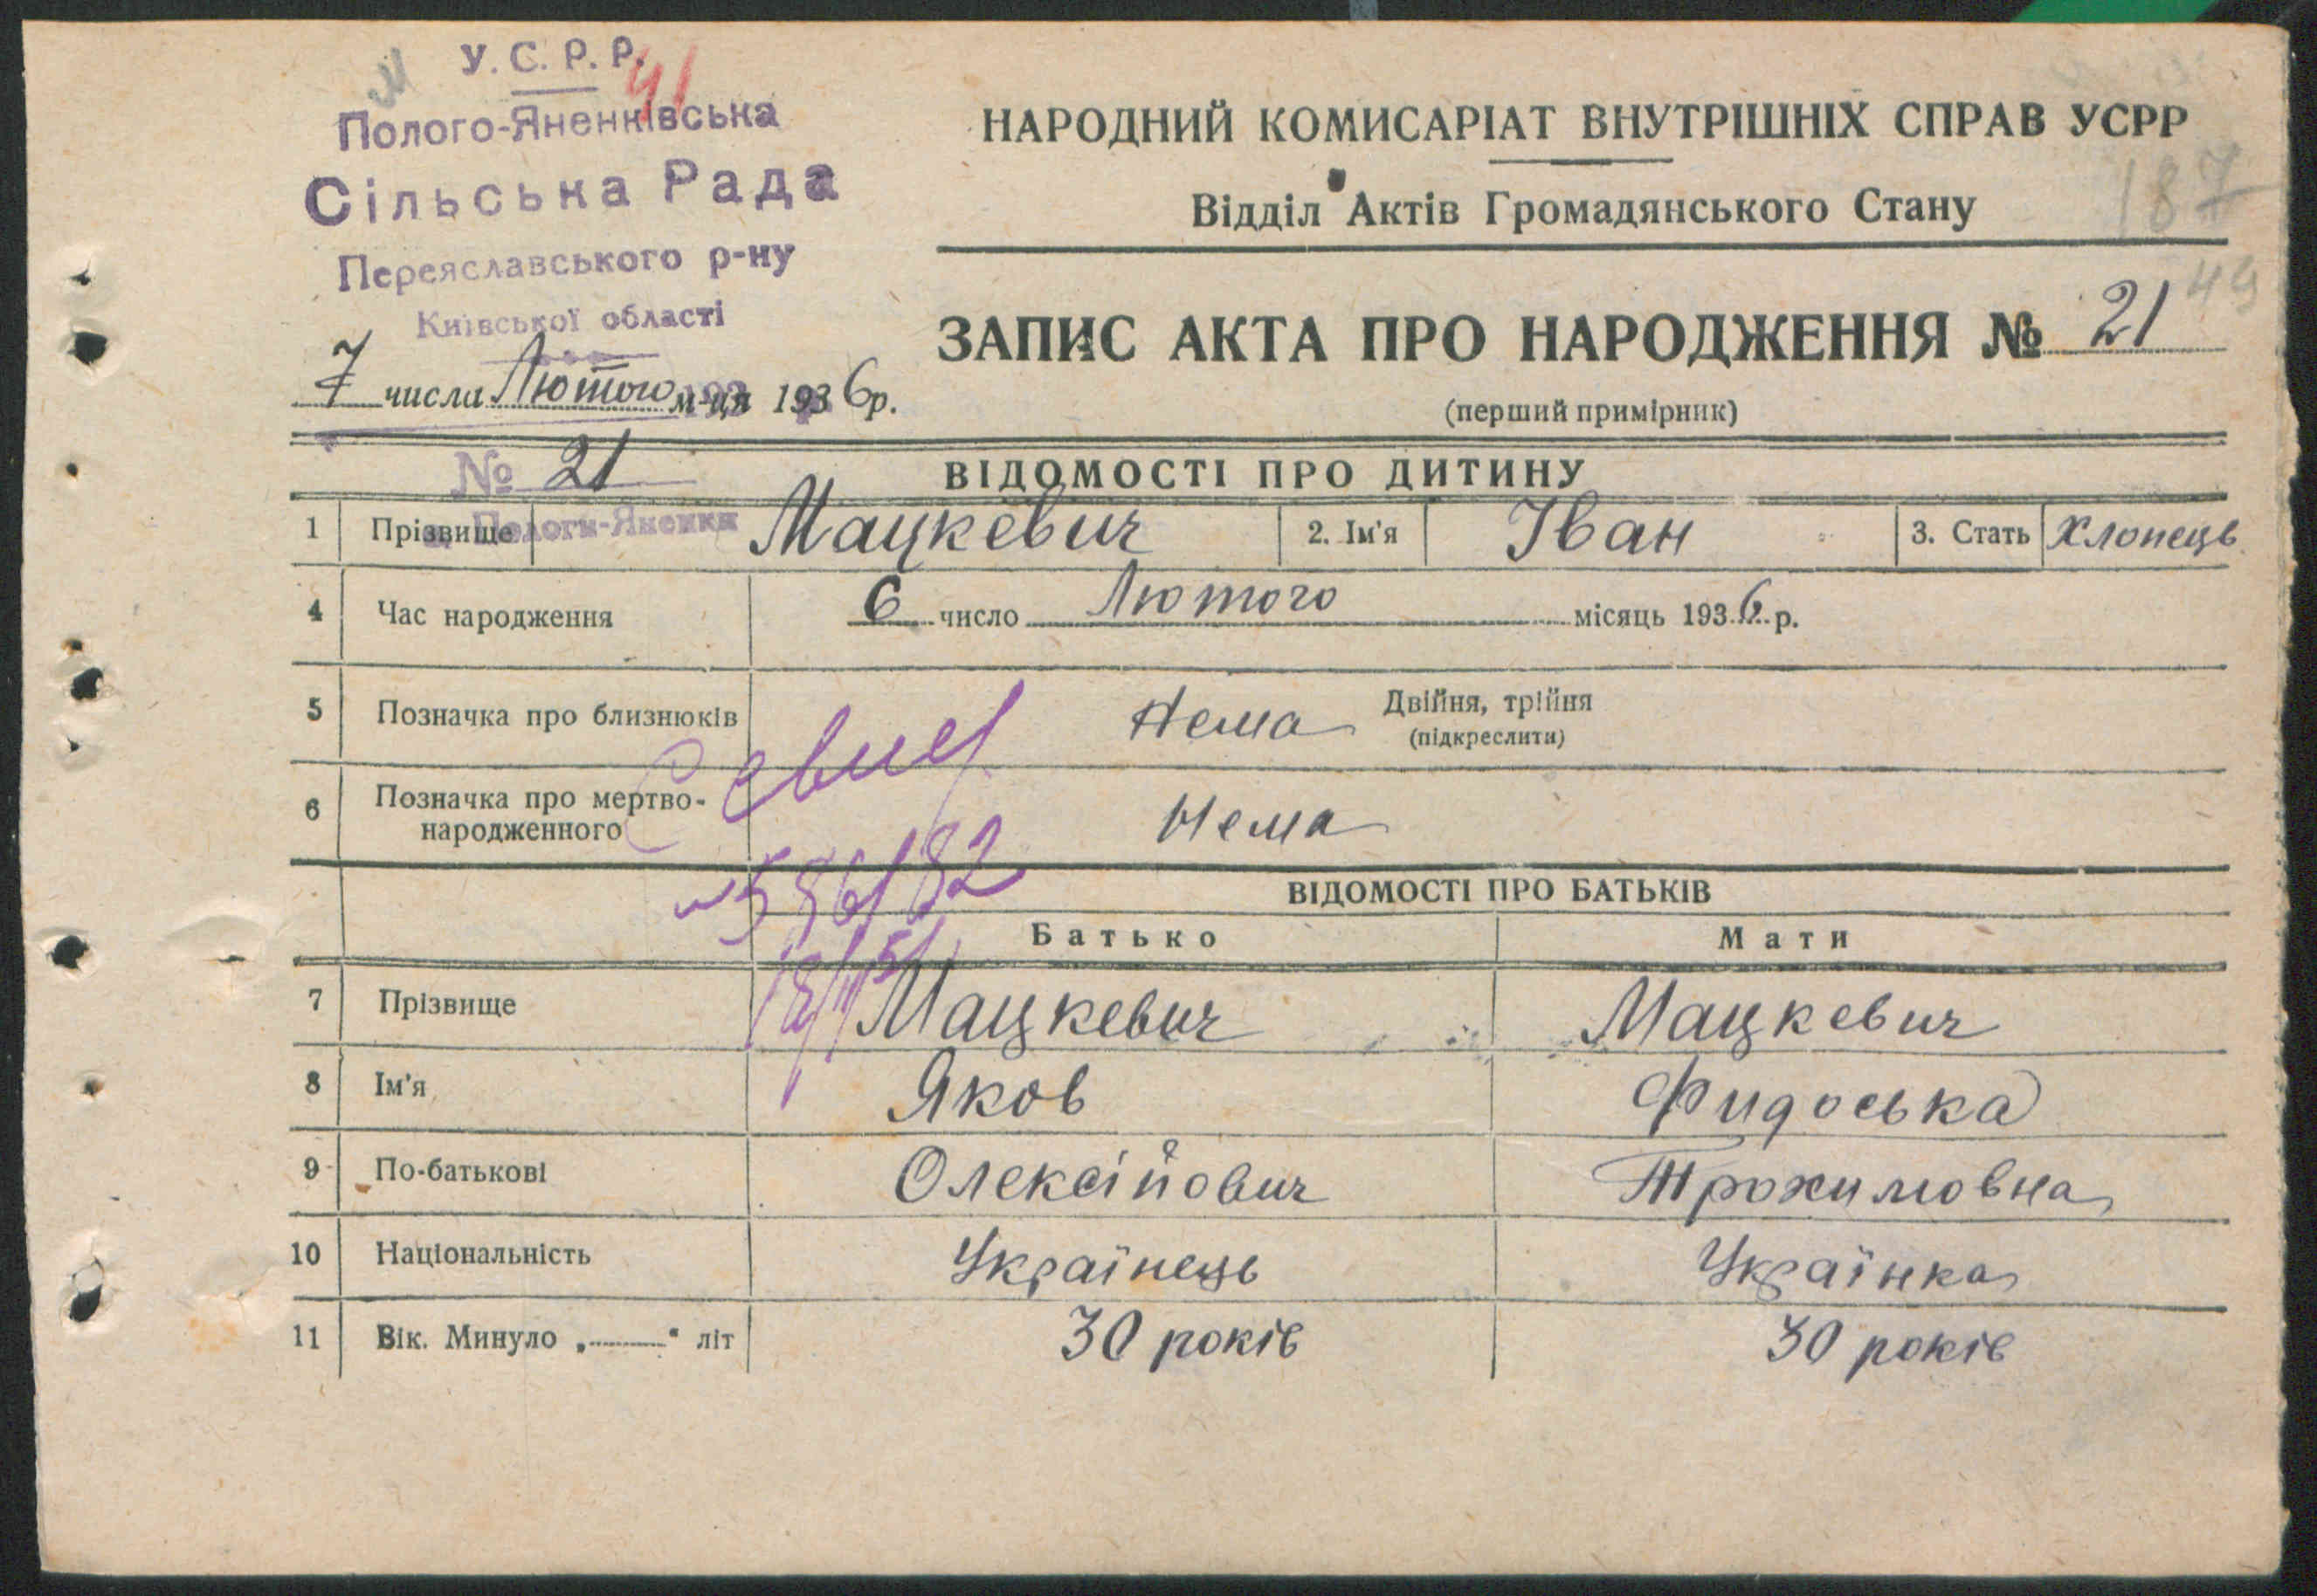 У. С. Р. Р.
41
Полого-Яненківська
Сільська Рада
Переяславського р-ну
Київської області
7 числа Лютого м-ця 1936 р.
№ 21
с. Пологи-Яненки
НАРОДНИЙ КОМИСАРІАТ ВНУТРІШНІХ СПРАВ УСРР
187
Відділ Актів Громадянського Стану
49
ЗАПИС АКТА ПРО НАРОДЖЕННЯ № 21
(перший примірник)
ВІДОМОСТІ ПРО ДИТИНУ
1 Прізвище Мацкевич 2. Ім'я Іван 3. Стать Хлопець
4 Час народження 6 число Лютого місяць 1936 р.
5 Позначка про близнюків Нема Двійня, трійня
(підкреслити)
6 Позначка про мертво-
народженного Нема
ВІДОМОСТІ ПРО БАТЬКІВ
Батько Мати
7 Прізвище Мацкевич Мацкевич
8 Ім'я Яков Фидоська
9 По-батькові Олексійович Трохимовна
10 Національність Українець Українка
11 Вік. Минуло „ — " літ 30 років 30 років